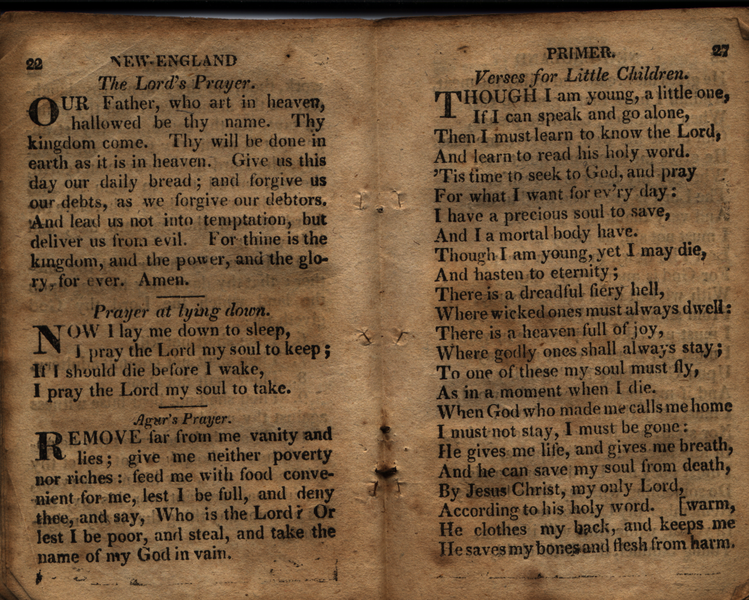 22 NEW-ENGLAND
The Lord's Prayer.
OUR Father, who art in heaven,
hallowed be thy name. Thy
kingdom come. Thy will be done in
earth as it is in heaven. Give us this
day our daily bread; and forgive us
our debts, as we forgive our debtors.
And lead us not into temptation, but
deliver us from evil. For thine is the
kingdom, and the power, and the glo-
ry, for ever. Amen.
Prayer at lying down.
NOW I lay me down to sleep,
I pray the Lord my soul to keep;
If I should die before I wake,
I pray the Lord my soul to take.
Agur's Prayer.
REMOVE far from me vanity and
lies; give me neither poverty
nor riches: feed me with food conve-
nient for me, lest I be full, and deny
thee, and say, Who is the Lord? Or
lest I be poor, and steal, and take the
name of my God in vain.
PRIMER. 27
Verses for Little Children.
THOUGH I am young, a little one,
If I can speak and go alone,
Then I must learn to know the Lord,
And learn to read his holy word.
'Tis time to seek to God, and pray
For what I want for ev'ry day:
I have a precious soul to save,
And I a mortal body have.
Though I am young, yet I may die,
And hasten to eternity;
There is a dreadful fiery hell,
Where wicked ones must always dwell:
There is a heaven full of joy,
Where godly ones shall always stay;
To one of these my soul must fly,
As in a moment when I die.
When God who made me calls me home
I must not stay, I must be gone:
He gives me life, and gives me breath,
And he can save my soul from death,
By Jesus Christ, my only Lord,
According to his holy word. [warm,
He clothes my back, and keeps me
He saves my bones and flesh from harm.